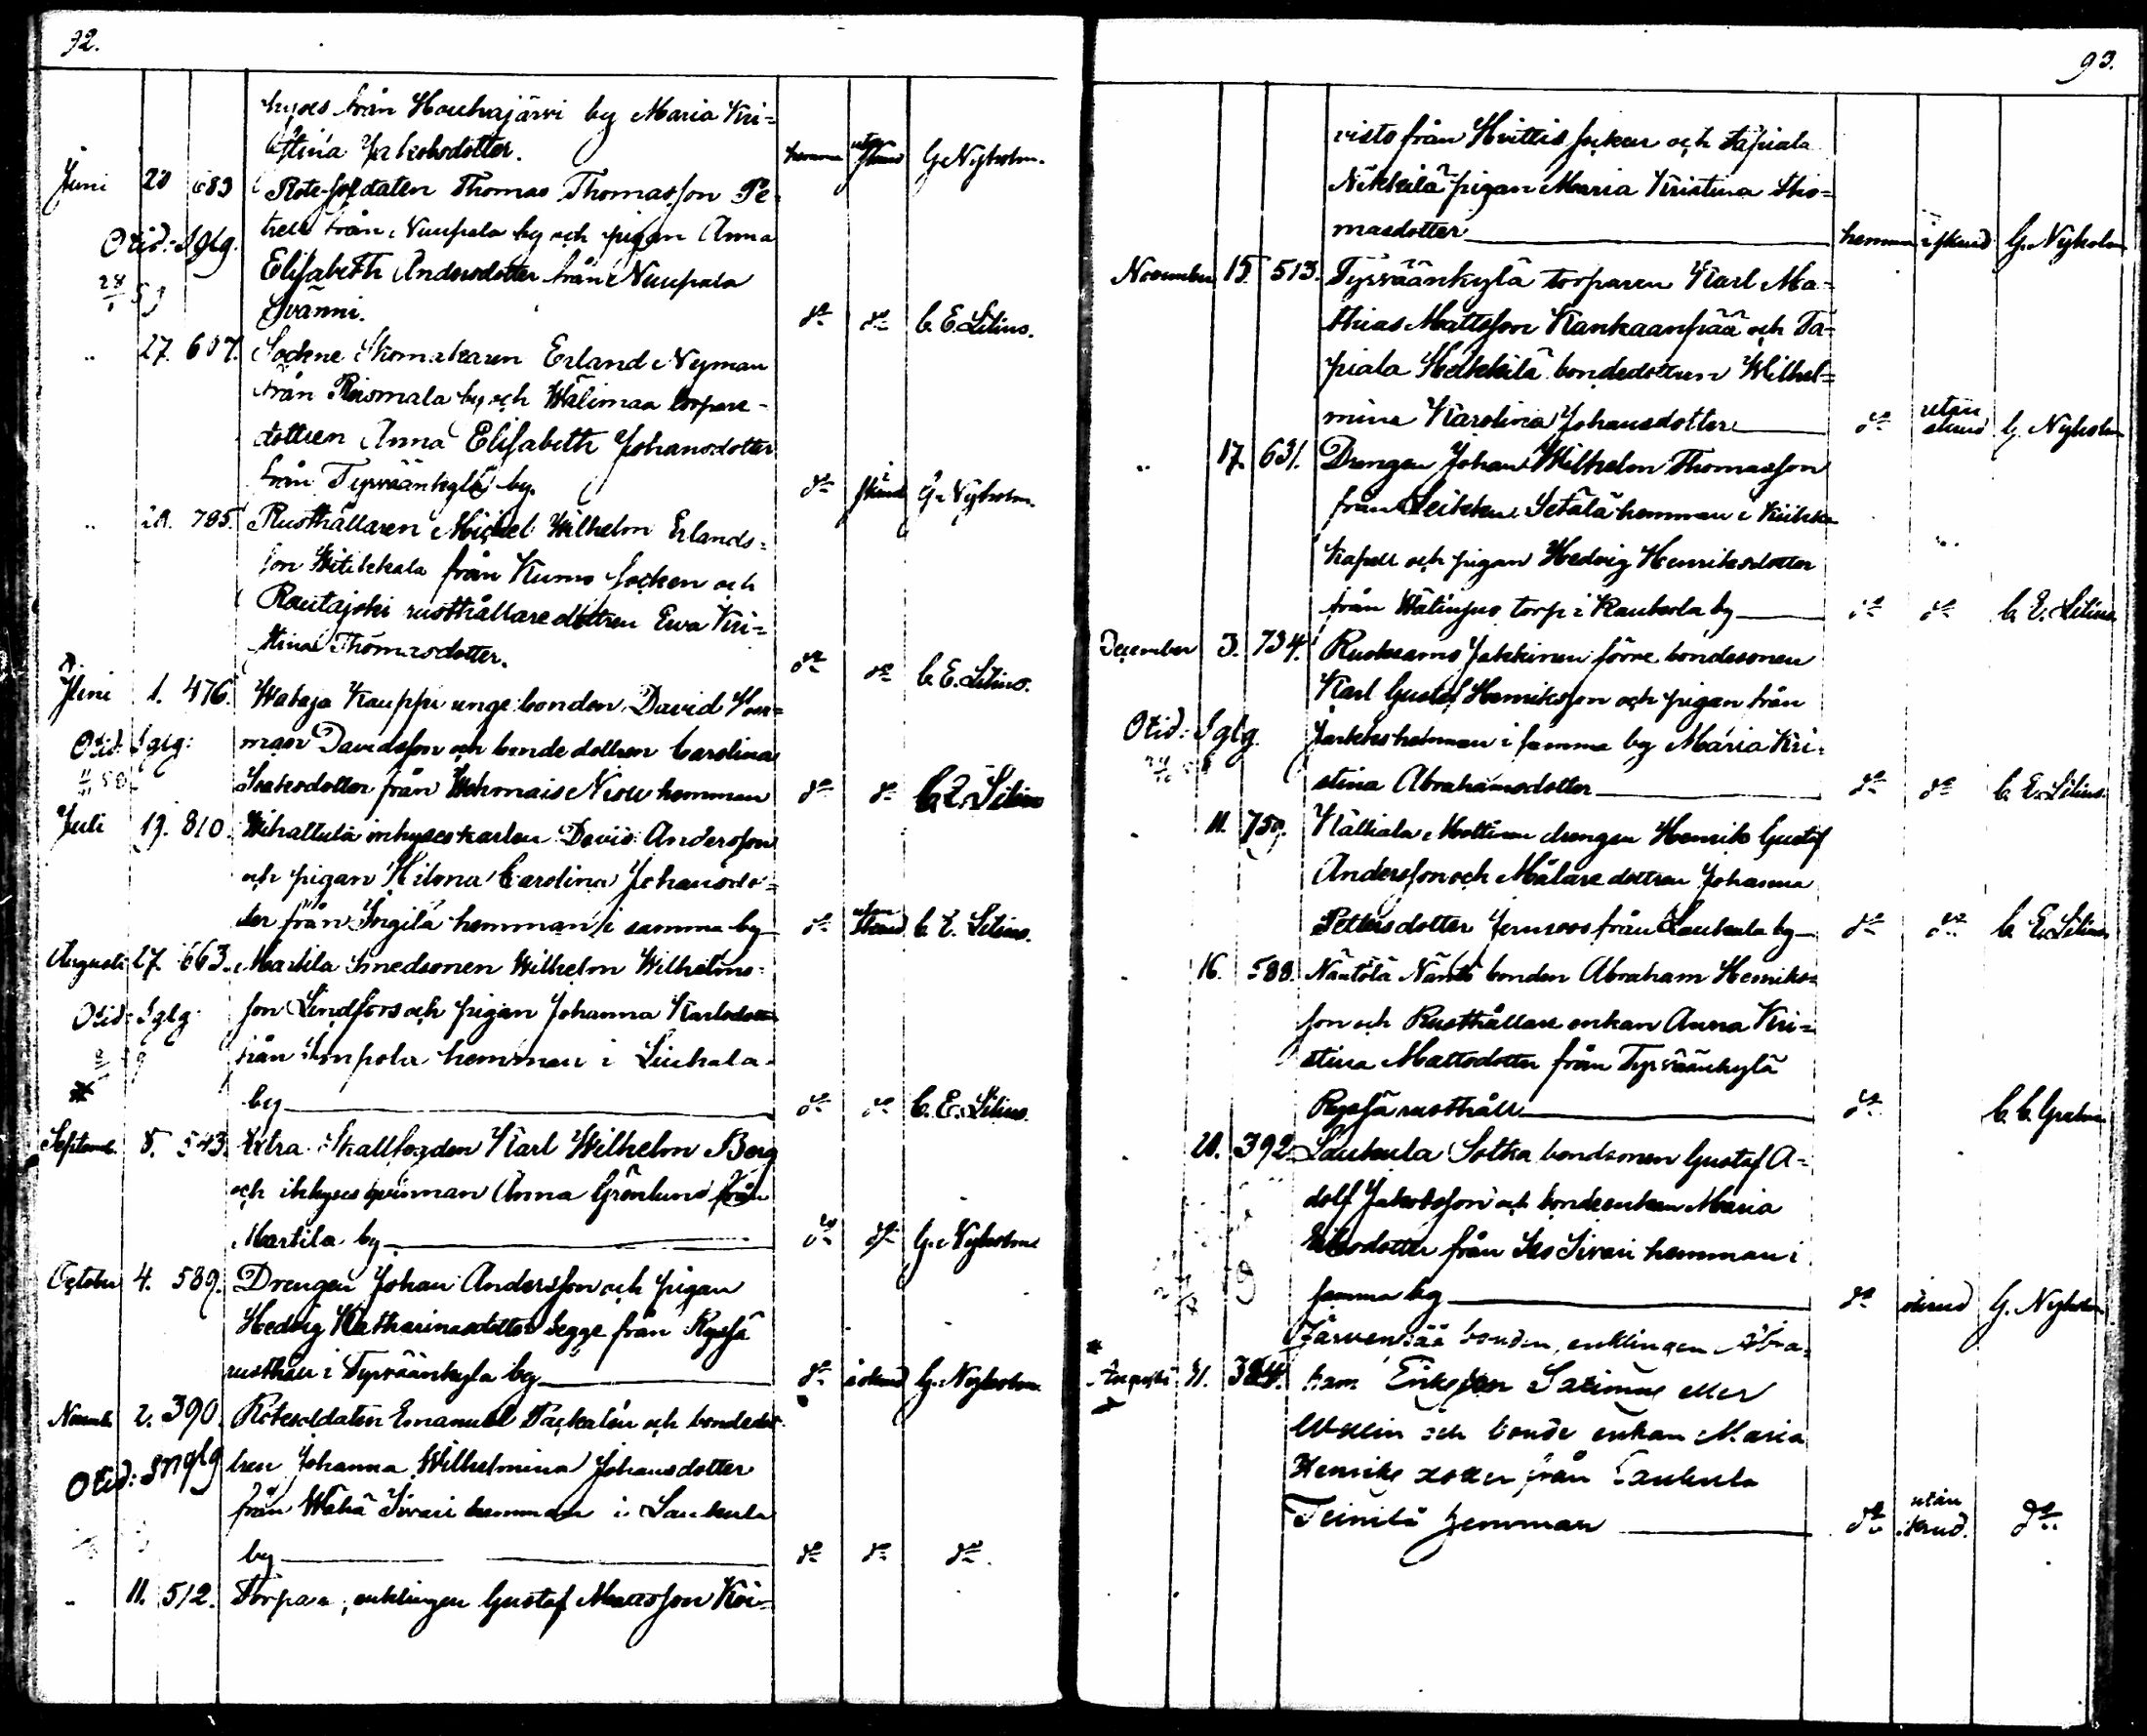 92.
hyses från Houhajärvi by Maria Kri=
stina Jakobsdotter. hemma utan skrud G. Nyholm.
Juni 20 689 Rote-soldaten Thomas Thomasson Pe-
trell från Nuupala by och pigan Anna
Otid: Sglg.
Elisabeth Andersdotter från Nuupala
28 59
Svänni. do do C. E. Lilius.
" 27. 607. Sockne Skomakaren Erland Nyman
från Roismala by och Wälimaa torpare-
dottren Anna Elisabeth Johansdotter
från Tyrväänkylä by. do i skrud G. Nyholm.
" 28. 785. Rusthållaren Mickel Wilhelm Erlands=
son Witikkala från Kumo socken och
Rautajoki rusthållaredottren Ewa Kri=
stina Thomasdotter. do do C. E. Lilius.
Juni 1. 476. Wataja Kauppi unge bonden David Her=
man Davidsson och bondedottren Carolina
Otid: Sglg:
Isaksdotter från Wehmais Niou hemman do do C. E. Lilius
Juli 19. 810. Wihattula inhyseskarlen David Andersson
och pigan Hilma Carolina Johansdot=
ter från Yrgilä hemman i samma by do utan skrud C. E. Lilius.
Augusti 27. 663. Martila smedsonen Wilhelm Wilhelms=
son Lindfors och pigan Johanna Karlsdotter
Otid: Sglg:
från Simpola hemman i Liuhala
by do do C. E. Lilius.
Septemb. 8. 543. Extra Skallfogden Karl Wilhelm Berg
och inhyses qvinnan Anna Grönlund från
Martila by do do G. Nyholm
October 4. 589. Drengen Johan Andersson och pigan
Hedvig Katharinasdotter Legge från Ryssä
rusthåll i Tyrväänkylä by do i skrud G. Nyholm
Novemb. 2. 390. Rotesoldaten Emanuel Täckalén och bondedot-
tren Johanna Wilhelmina Johansdotter
Otid: Snglg
från Wähä Sivari hemman i Laukula
by do do do.
" 11. 512. Torpare, enklingen Gustaf Mattsson Koi=
93.
visto från Hvittis socken och Tapiala
Nikkilä pigan Maria Kristina Tho=
masdotter hemma i skrud G. Nyholm
November 15. 513. Tyrväänkylä torparen Karl Ma=
thias Mattsson Kankaanpää och Ta=
piala Heikkilä bondedottren Wilhel=
mina Karolina Johansdotter do utan skrud G. Nyholm
" 17. 631. Drengen Johan Wilhelm Thomasson
från Leikku Setälä hemman i Kiikka
Kapell och pigan Hedvig Henriksdotter
från Wälinjus torp i Kaukola by do do C. E. Lilius
December 3. 734. Ruokeamo Jaakkinen förre bondesonen
Karl Gustaf Henriksson och pigan från
Otid: Sglg.
Jaakko hemman i samma by Maria Kri=
stina Abrahamsdotter do do C. E. Lilius.
" 11. 759. Källiala Mattinen drengen Henrik Gustaf
Andersson och Målare dottren Johanna
Pettersdotter Jernroos från Laukula by do do C. E. Lilius
" 16. 588. Näntölä Näntö bonden Abraham Henriks=
son och Rusthållare enkan Anna Kri=
stina Mattsdotter från Tyrväänkylä
Ryssä rusthåll do C. C. Grahn
" 28. 392. Laukula Sotka bondsonen Gustaf A=
dolf Jakobsson och bondeenkan Maria
Eriksdotter från Iso Sivari hemman i
samma by do i skrud G. Nyholm
* Järvenpää bonden, enklingen Abra=
Augusti 31. 384. ham Eriksson Salinus eller
Wallin och bonde enkan Maria
Henriks dotter från Laukula
Teinilä hemman do utan skrud. do